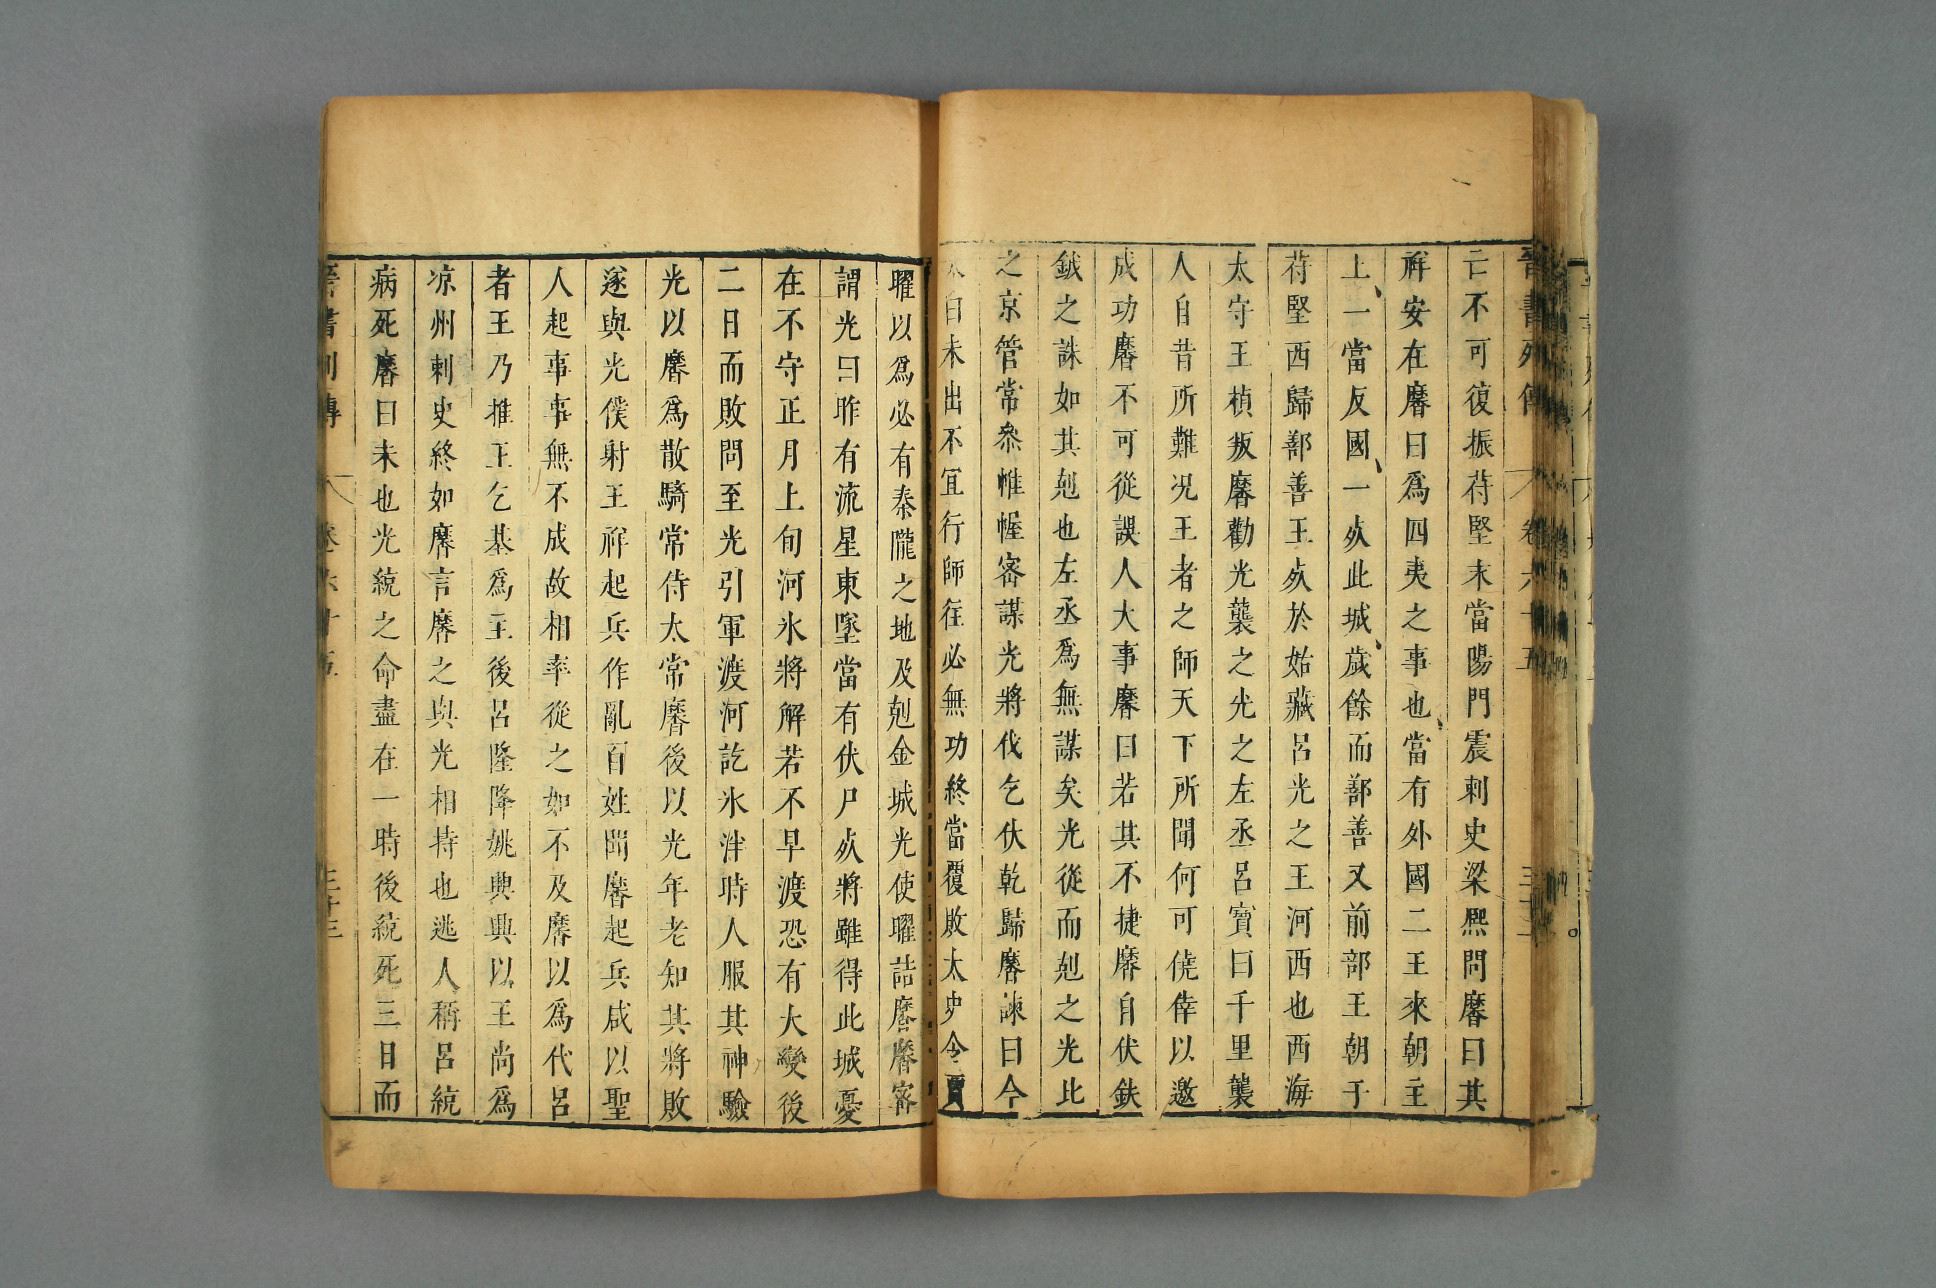 晉書列傳 卷六十五 三十二
亡不可復振苻堅末當陽門震刺史梁熙問黁曰其
祥安在黁曰爲四夷之事也當有外國二王來朝主
上一當反國一死此城歲餘而鄯善又前部王朝于
苻堅西歸鄯善王死於姑藏呂光之王河西也西海
太守王楨叛黁勸光襲之光之左丞呂寶曰千里襲
人自昔所難况王者之師天下所聞何可僥倖以邀
成功黁不可從誤人大事黁曰若其不捷黁自伏鈇
鉞之誅如其剋也左丞爲無謀矣光從而剋之光比
之京管常參帷幄密謀光將伐乞伏乾歸黁諫曰今
太白未出不宜行師往必無功終當覆敗太史令賈
曜以爲必有秦隴之地及剋金城光使曜詰黁黁密
謂光曰昨有流星東墜當有伏尸死將雖得此城憂
在不守正月上旬河氷將解若不早渡恐有大變後
二日而敗問至光引軍渡河訖氷泮時人服其神驗
光以黁爲散騎常侍太常黁後以光年老知其將敗
遂與光僕射王祥起兵作亂百姓聞黁起兵咸以聖
人起事事無不成故相率從之如不及黁以爲代呂
者王乃推王乞基爲主後呂隆降姚興興以王尚爲
凉州刺史終如黁言黁之與光相持也逃人稱呂統
病死黁曰未也光統之命盡在一時後統死三日而
晉書列傳 卷六十五 三十三